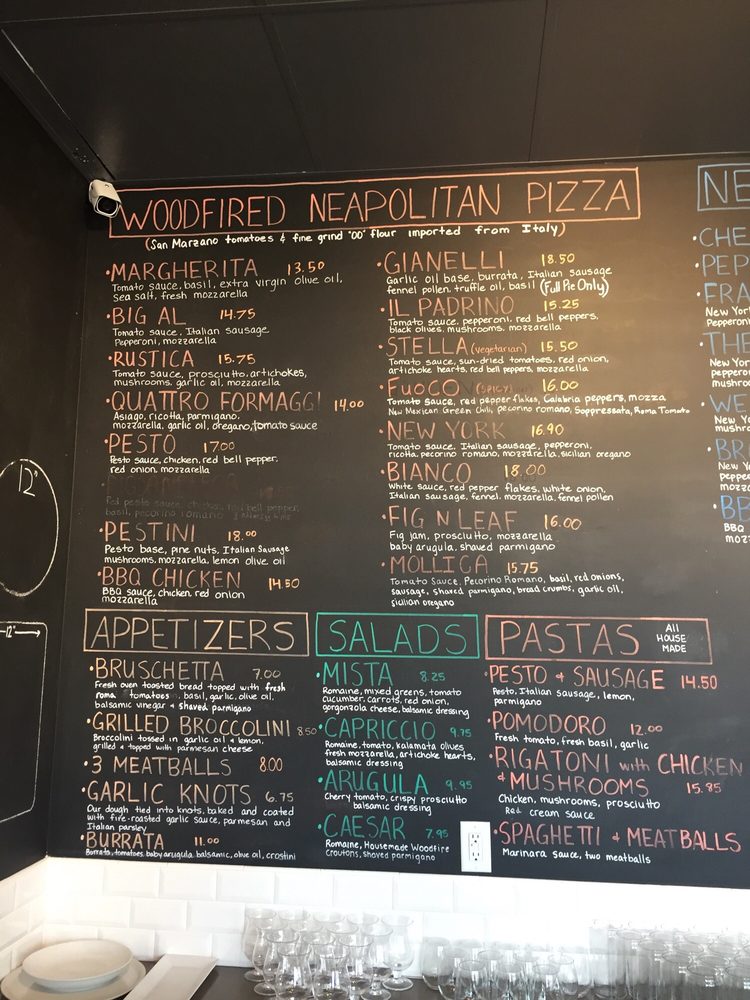 WOODFIRED NEAPOLITAN PIZZA
(San Marzano tomatoes & fine grind "00" flour imported from Italy)
• MARGHERITA 13.50
Tomato sauce, basil, extra virgin olive oil,
sea salt, fresh mozzarella
• BIG AL 14.75
Tomato sauce, Italian sausage
Pepperoni, mozzarella
• RUSTICA 15.75
Tomato sauce, prosciutto, artichokes,
mushrooms, garlic oil, mozzarella
• QUATTRO FORMAGGI 14.00
Asiago, ricotta, parmigano,
mozzarella, garlic oil, oregano, tomato sauce
• PESTO 17.00
Pesto sauce, chicken, red bell pepper,
red onion, mozzarella
Red pesto sauce, chicken, red bell pepper,
basil, pecorino romano
• PESTINI 18.00
Pesto base, pine nuts, Italian Sausage
mushrooms, mozzarella, lemon olive oil
• BBQ CHICKEN 14.50
BBQ sauce, chicken, red onion
mozzarella
• GIANELLI 18.50
Garlic oil base, burrata, Italian sausage
fennel pollen, truffle oil, basil (Full Pie Only)
• IL PADRINO 15.25
Tomato sauce, pepperoni, red bell peppers,
black olives, mushrooms, mozzarella
• STELLA (vegetarian) 15.50
Tomato sauce, sun-dried tomatoes, red onion,
artichoke hearts, red bell peppers, mozzarella
• FUOCO (SPICY) 16.00
Tomato Sauce, red pepper flakes, Calabria peppers, mozza
New Mexican Green Chili, pecorino romano, Soppressata, Roma Tomato
• NEW YORK 16.90
Tomato sauce, Italian sausage, pepperoni,
ricotta, pecorino romano, mozzarella, sicilian oregano
• BIANCO 18.00
White sauce, red pepper flakes, white onion,
Italian sausage, fennel, mozzarella, fennel pollen
• FIG N LEAF 16.00
Fig jam, prosciutto, mozzarella
baby arugula, shaved parmigano
• MOLLICA 15.75
Tomato Sauce, Pecorino Romano, basil, red onions,
sausage, shaved parmigano, bread crumbs, garlic oil,
sicilian oregano
NE
• CHE
• PEP
• FRA
New York
Pepperoni
• THE
New York
pepperon
mozza
• WE
New Y
mushro
• BR
New Y
peppe
mozz
• BB
BBQ
moz
12"
12"
APPETIZERS
• BRUSCHETTA 7.00
Fresh oven toasted bread topped with fresh
roma tomatoes, basil, garlic, olive oil,
balsamic vinegar & shaved parmigano
• GRILLED BROCCOLINI 8.50
Broccolini tossed in garlic oil & lemon,
grilled & topped with parmesan cheese
• 3 MEATBALLS 8.00
• GARLIC KNOTS 6.75
Our dough tied into knots, baked and coated
with fire-roasted garlic sauce, parmesan and
Italian parsley
• BURRATA 11.00
Burrata, tomatoes, baby arugula, balsamic, olive oil, crostini
SALADS
• MISTA 8.25
Romaine, mixed greens, tomato
cucumber, carrots, red onion,
gorgonzola cheese, balsamic dressing
• CAPRICCIO 9.75
Romaine, tomato, kalamata olives
fresh mozzarella, artichoke hearts,
balsamic dressing
• ARUGULA 9.95
Cherry tomato, crispy prosciutto
balsamic dressing
• CAESAR 7.95
Romaine, Housemade Woodfire
croutons, shaved parmigano
PASTAS All HOUSE MADE
• PESTO & SAUSAGE 14.50
Pesto, Italian sausage, lemon,
parmigano
• POMODORO 12.00
Fresh tomato, fresh basil, garlic
• RIGATONI with CHICKEN
& MUSHROOMS 15.85
Chicken, mushrooms, prosciutto
Red cream sauce
• SPAGHETTI & MEATBALLS
Marinara sauce, two meatballs